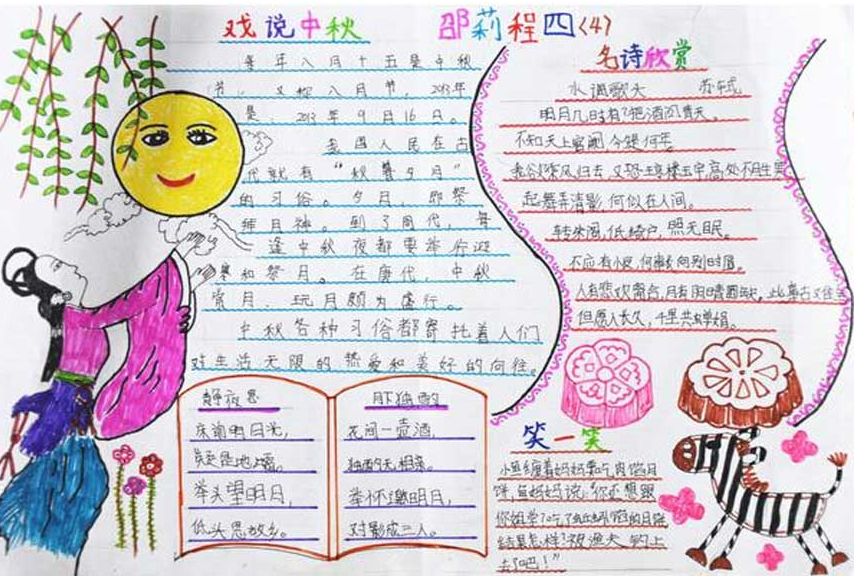 戏说中秋 邵莉程四(4)
每年八月十五是中秋
节，又称八月节，2013年
是，2013年9月16日。
我国人民在古
代就有“秋暮夕月”
的习俗。夕月，即祭
拜月神。到了周代，每
逢中秋夜都要举行迎
寒和祭月。在唐代，中秋
赏月、玩月颇为盛行。
中秋各种习俗都寄托着人们
对生活无限的热爱和美好的向往。
名诗欣赏
水调歌头 苏轼
明月几时有？把酒问青天。
不知天上宫阙，今夕是何年
我欲乘风归去，又恐琼楼玉宇，高处不胜寒
起舞弄清影，何似在人间。
转朱阁，低绮户，照无眠。
不应有恨，何事长向别时圆。
人有悲欢离合，月有阴晴圆缺，此事古难全
但愿人长久，千里共婵娟。
静夜思
床前明月光，
疑是地上霜。
举头望明月，
低头思故乡。
月下独酌
花间一壶酒，
独酌无相亲。
举杯邀明月，
对影成三人。
笑一笑
小鱼缠着妈妈要吃肉馅月
饼，鱼妈妈说：“你还想跟
你姐学？吃了蚯蚓馅的月饼
结果怎样？被渔夫钓上
去了吧！”